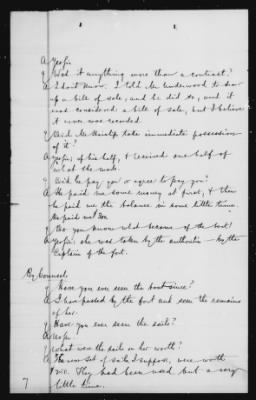 A Yes sir.
Q Was it anything more than a contract?
A I dont know. I told Mr. Underwood to draw
up a bill of sale, and he did so, and it
was considered a bill of sale, but I believe
it never was recorded.
Q Did Mr. take immediate possession
of it?
A Yes sir; of his half, & received one half of
what she made.
Q Did he pay you or agree to pay you?
A He paid me some money at first, & then
he paid me the balance in some little time.
He paid me
Q Do you know what became of the boat?
A Yes sir; she was taken by the - by the
Captain of the fort.
By Counsel
Q Have you ever seen the boat since?
A I have passed by the fort and seen the remains
of her.
Q Have you ever seen the sails?
A No sir.
Q What were the sails on her worth?
A The new set of sails I suppose, were worth
They had been used but a very
little time.
7